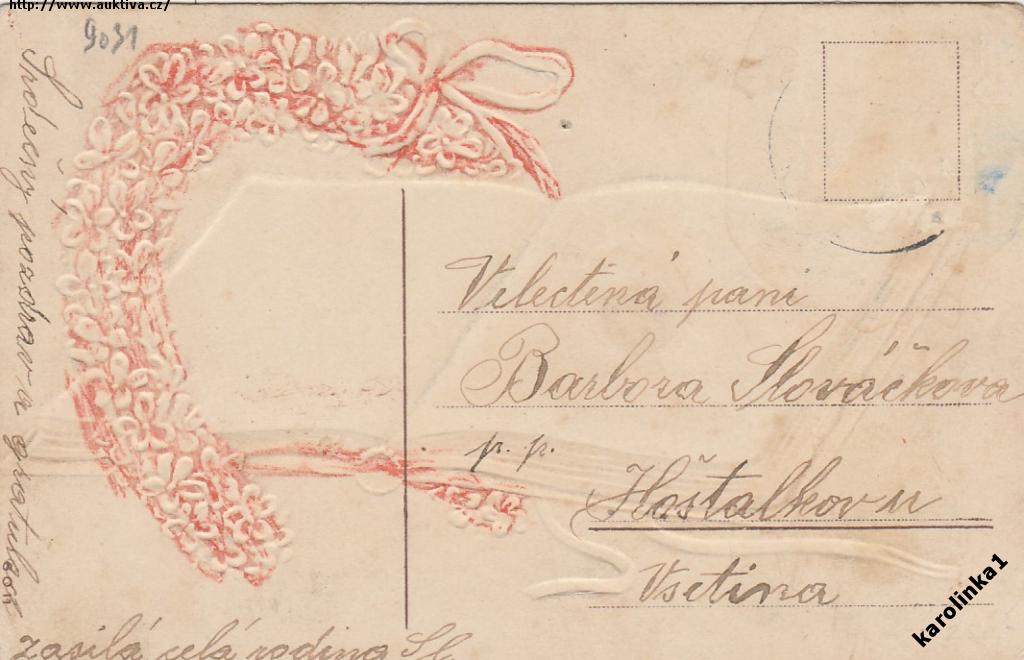 http://www.auktiva.cz/
9031
Srdečný pozdrav a gratulace
zasílá celá rodina Sl
Velectěná paní
Barbora Slováčkova
p. p.
Hošťalkov u
Vsetina
karolinka1